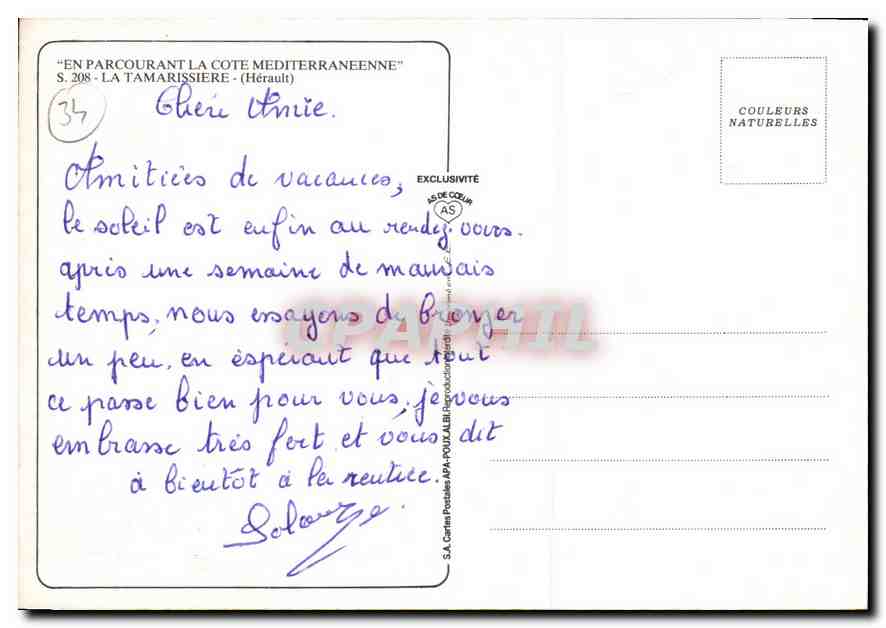 "EN PARCOURANT LA COTE MEDITERRANEENNE"
S. 208 - LA TAMARISSIERE - (Hérault)
34
Chère Amie.
Amitiées de vacances,
le soleil est enfin au rendez-vous.
après une semaine de mauvais
temps, nous essayons de bronzer
un peu, en éspérant que tout
ce passe bien pour vous, je vous
embrasse très fort et vous dit
à bientôt à la rentrée.
Solange.
EXCLUSIVITÉ
AS DE CŒUR
AS
S.A. Cartes Postales APA-POUX, ALBI. Reproduction interdite
COULEURS
NATURELLES
CPAPHIL